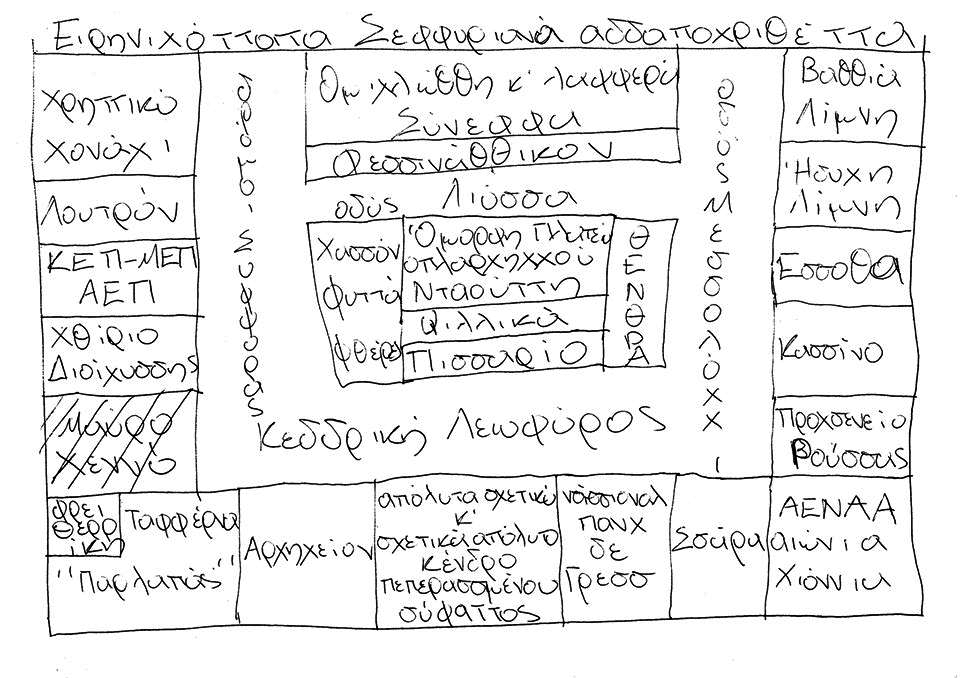 Ειρηνιχόττοπα Σεφφυριανά αδδαποχριθέττα
Χρηττικό
χονάχι
Λουτρόν
ΚΕΠ-ΜΕΠ
ΑΕΠ
Χθίριο
Διοίχυσσης
Μαύρο
Χεννό
Ομιχλώθθη κ' λαφφερά
Σύνεφφα
Φεσσινάθθικον
οδός Λιόσσα
Χασσόν
φυττά
φθερέ
Όμορφη Πλατεί
οπλαρχηχχού
Νταούττη
Φιλλικά
Πισσαρίο
ΘΕΝΘΡΑ
οδόςΜεσσολόχχι
Κεδδρική Λεωφόρος
Βαθθιά
Λίμνη
Ήσυχη
Λίμνη
Εσσοθα
Κασσίνο
Προχσενείο
Βούσσας
φρει
θερρ
ίκη
Ταφφέρνα
"Παρλαπάς"
Αρχηχείον
απόλυτα σχετικό
κ'
σχετικά απόλυτο
κένδρο
πεπερασμένου
σύφαττος
νάσσιοναλ
πανχ
δε
Γρεσσ
Σσάρα
ΑΕΝΑΑ
αιώνια
Χιόννια